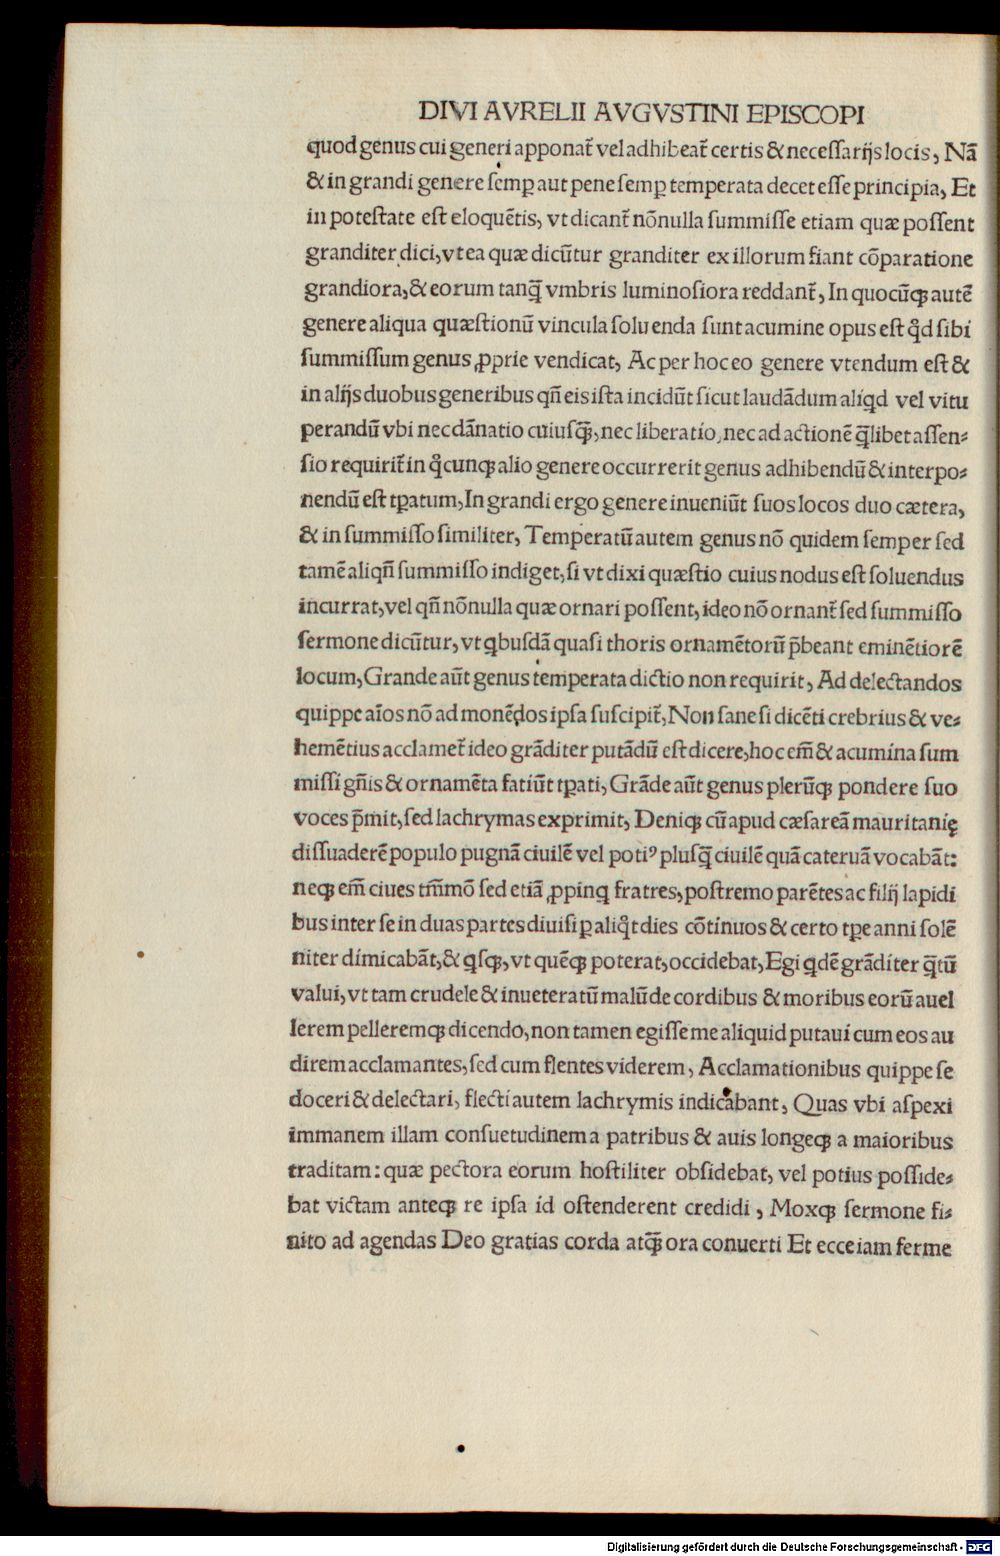 DIVI AVRELII AVGVSTINI EPISCOPI
quod genus cui generi apponat᷑ vel adhibeat᷑ certis & neceſſarijs locis, Nã
& in grandi genere ſemꝑ aut pene ſemꝑ temperata decet eſſe principia, Et
in poteſtate eſt eloquẽtis, vt dicant᷑ nõnulla ſummiſſe etiam quæ poſſent
granditer dici, vt ea quæ dicũtur granditer ex illorum fiant cõparatione
grandiora, & eorum tanq̃ vmbris luminoſiora reddant᷑, In quocũqꝫ autẽ
genere aliqua quæſtionũ vincula ſoluenda ſunt acumine opus eſt qd̓ ſibi
ſummiſſum genus ꝓprie vendicat, Ac per hoc eo genere vtendum eſt &
in alijs duobus generibus qñ eis iſta incidũt ſicut laudãdum aliqd vel vitu
perandũ vbi nec dãnatio cuiuſq̃, nec liberatio, nec ad actionẽ q̃libet aſſen⸗
ſio requirit᷑ in qͥcunqꝫ alio genere occurrerit genus adhibendũ & interpo⸗
nendũ eſt tꝑatum, In grandi ergo genere inueniũt ſuos locos duo cætera,
& in ſummiſſo ſimiliter, Temperatũ autem genus nõ quidem ſemper ſed
tamẽ aliqñ ſummiſſo indiget, ſi vt dixi quæſtio cuius nodus eſt ſoluendus
incurrat, vel qñ nõnulla quæ ornari poſſent, ideo nõ ornant᷑ ſed ſummiſſo
ſermone dicũtur, vt qbuſdã quaſi thoris ornamẽtorũ p̃beant eminẽtiorẽ
locum, Grande aũt genus temperata dictio non requirit, Ad delectandos
quippe aĩos nõ ad monẽdos ipſa ſuſcipit᷑, Non ſane ſi dicẽti crebrius & ve⸗
hemẽtius acclamet᷑ ideo grãditer putãdũ eſt dicere, hoc em̃ & acumina ſum
miſſi gñis & ornamẽta fatiũt tꝑati, Grãde aũt genus plerũqꝫ pondere ſuo
voces p̃mit, ſed lachrymas exprimit, Deniqꝫ cũ apud cæſareã mauritanię
diſſuaderẽ populo pugnã ciuilẽ vel potiꝰ pluſq̃ ciuilẽ quã cateruã vocabãt:
neqꝫ em̃ ciues tm̃mõ ſed etiã ꝓpinq fratres, poſtremo parẽtes ac filij lapidi
bus inter ſe in duas partes diuiſi ꝑ aliqͦt dies cõtinuos & certo tꝑe anni ſolẽ
niter dimicabãt, & qſqꝫ, vt quẽqꝫ poterat, occidebat, Egi qdẽ grãditer q̃tũ
valui, vt tam crudele & inueteratũ malũ de cordibus & moribus eorũ auel
lerem pelleremqꝫ dicendo, non tamen egiſſe me aliquid putaui cum eos au
direm acclamantes, ſed cum flentes viderem, Acclamationibus quippe ſe
doceri & delectari, flecti autem lachrymis indicabant, Quas vbi aſpexi
immanem illam conſuetudinem a patribus & auis longeqꝫ a maioribus
traditam: quæ pectora eorum hoſtiliter obſidebat, vel potius poſſide⸗
bat victam anteqꝫ re ipſa id oſtenderent credidi, Moxqꝫ ſermone fi⸗
nito ad agendas Deo gratias corda atqꝫ̃ ora conuerti Et ecce iam ferme
Digitalisierung gefördert durch die Deutsche Forschungsgemeinschaft - DFG